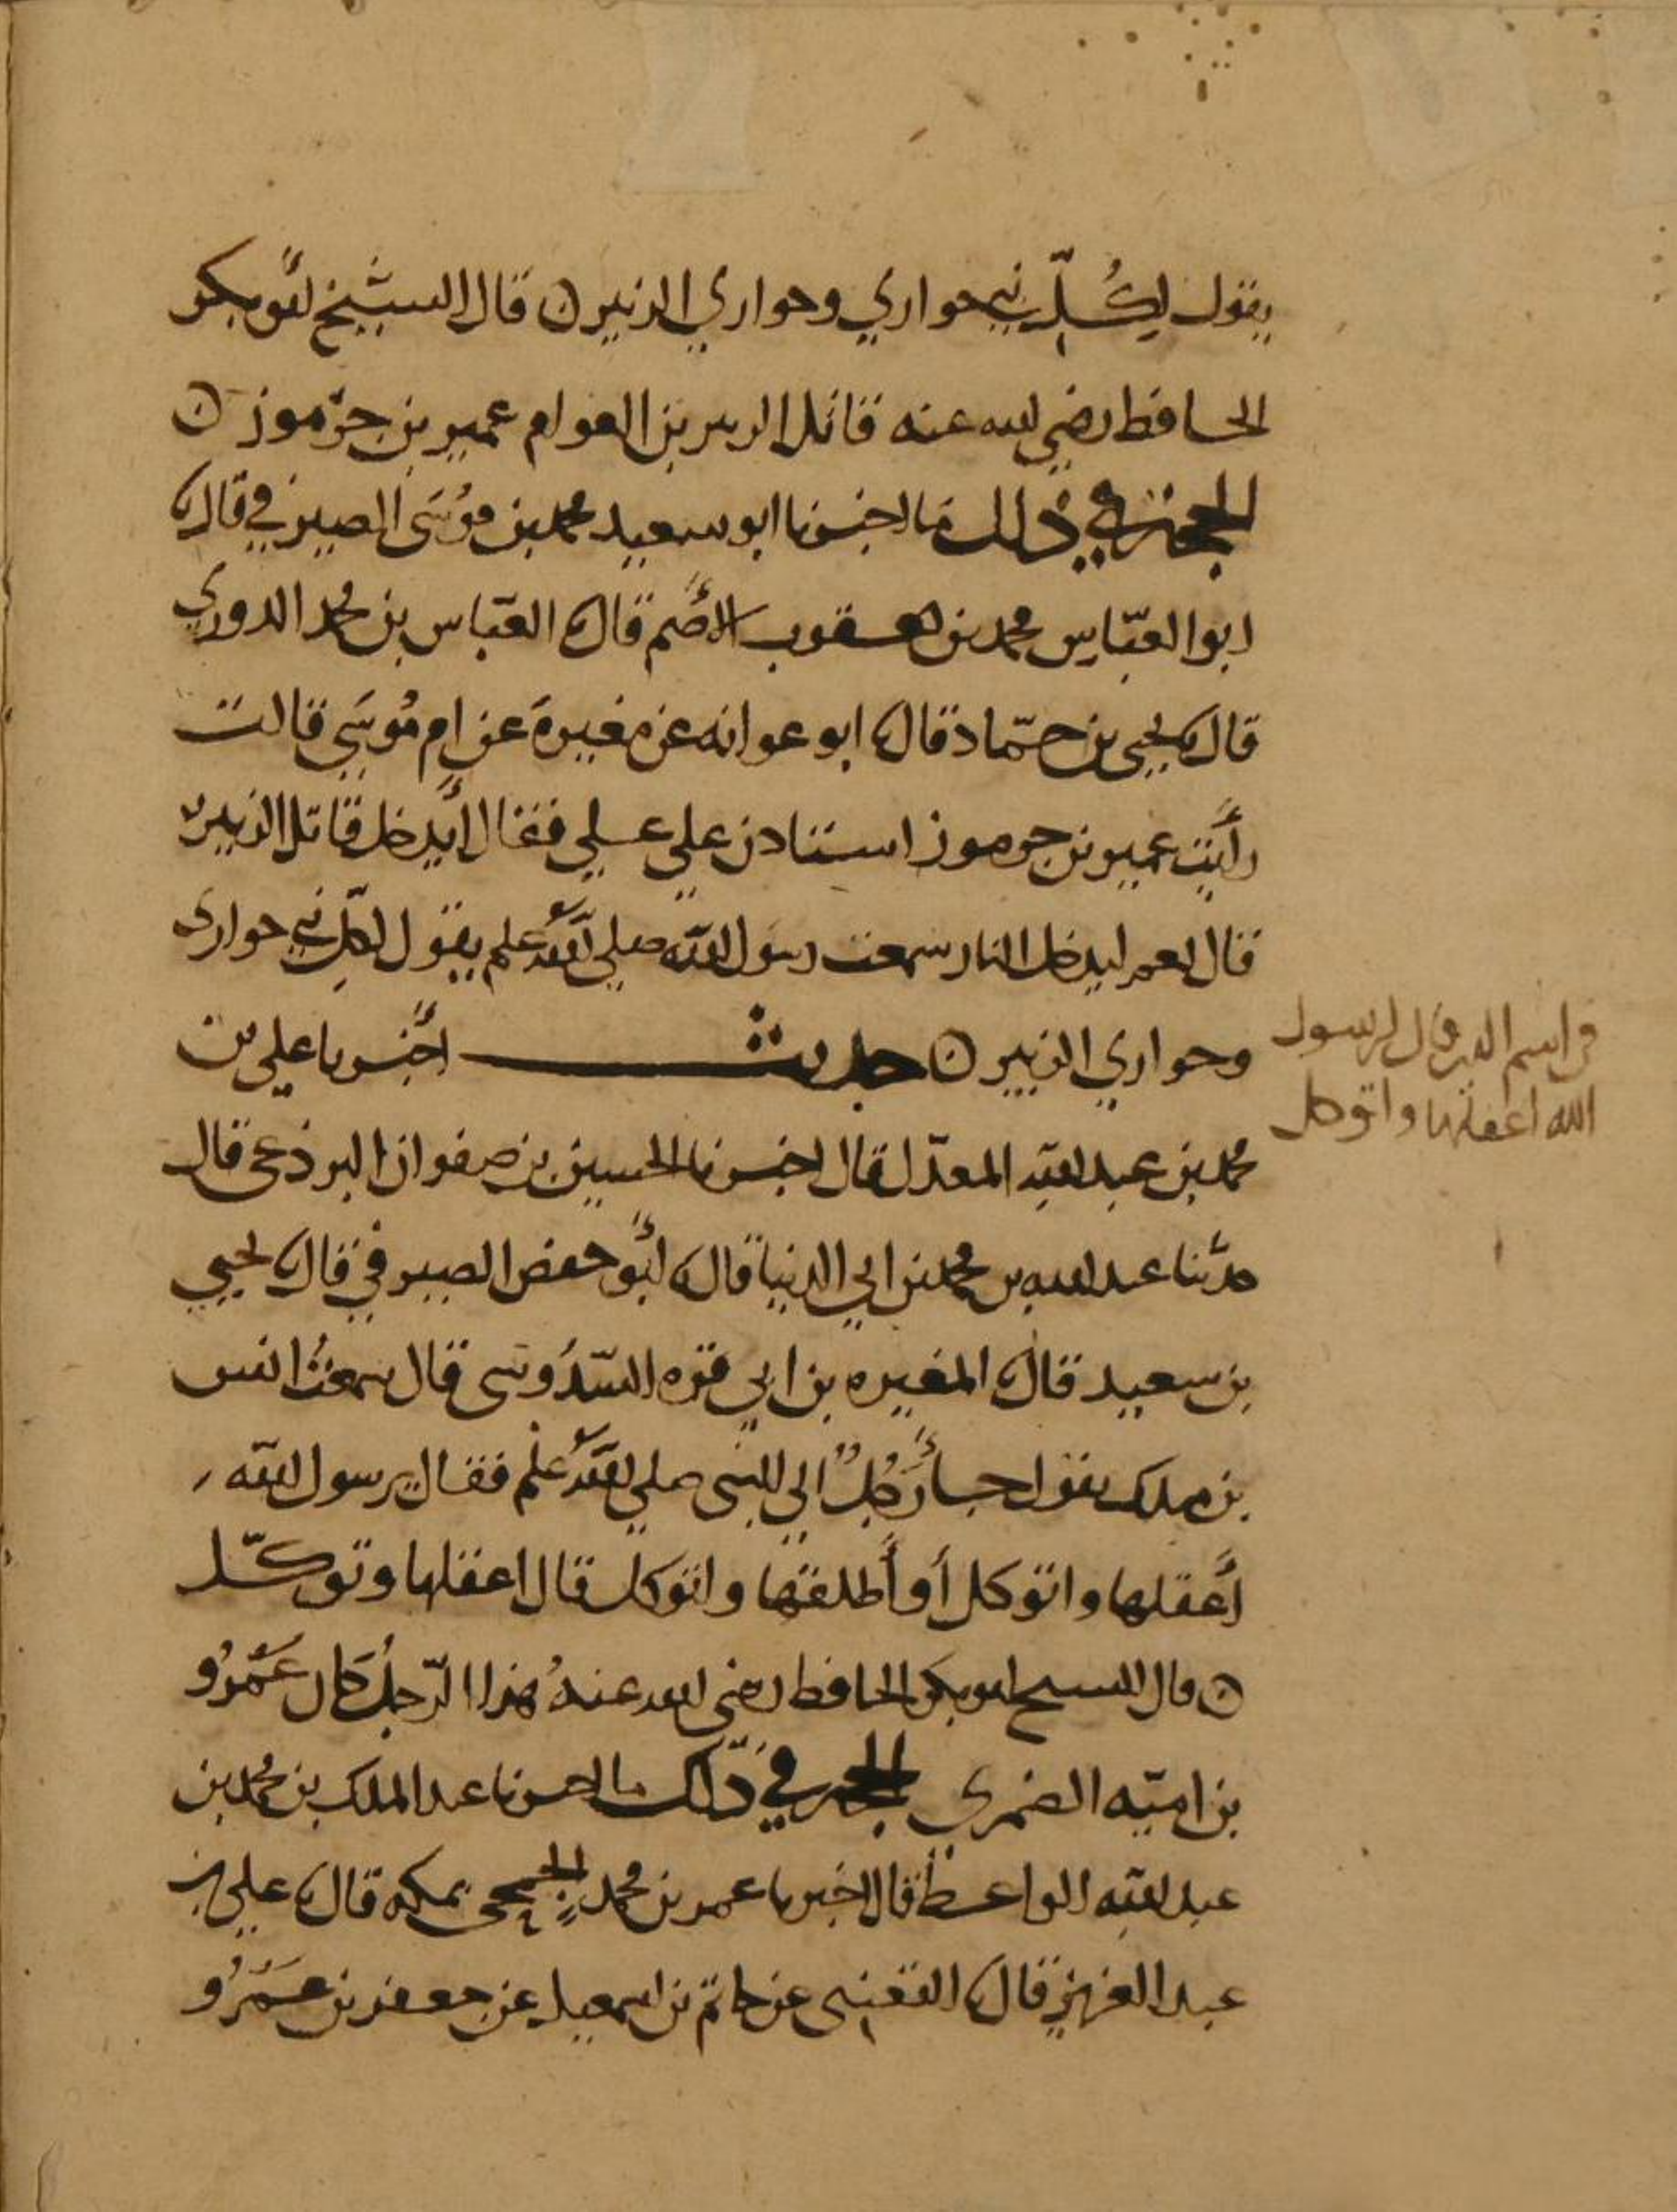 يقول لكلّ نبي حواري وحواري الزبير ن قال الشيخ أبو بكر
الحافظ رضي الله عنه قاتل الزبير بن العوام عمير بن جرموز ن
الحجة في ذلك ما اخبرنا ابو سعيد محمد بن موسَى الصيرفي قال ثنا
ابو العبّاس محمد بن يعقوب الأصم قال ثنا العبّاس بن محمد الدوري
قال ثنا يحيى بن حمّاد قال ثنا ابو عوانه عن مغيرة عن ام مُوسَى قالت
رأيت عمير بن جرموز استاذن علي علي فقال أيدخل قاتل الزبير
فقال نعم ليدخل النار سمعت رسول الله صلى الله عليه وسلم يقول لكلِّ نبي حواري
وحواري الزبير ن حديث أخبرنا علي بن
محمد بن عبد الله المعدّل قال اخبرنا الحسين بن صفوان البرذعي قال
حدّثنا عبد الله بن محمد بن ابي الدنيا قال ثنا أبو حفص الصيرفي قال ثنا يحيى
بن سعيد قال ثنا المغيره بن ابي قره السّدُوسي قال سمعتُ انس
بن ملك يقول جاء رَجُلٌ إلى النبي صلى الله عليه وسلم فقال يرسول الله
أعقلها واتوكل أو أطلقها واتوكل قال اعقلها وتوكّل
ن قال الشيخ ابو بكر الحافظ رضي الله عنهُ هذا الرّجلُ كَان عَمْرُو
بن اميّه الضمري الحجة في ذلك ما اخبرنا عبد الملك بن محمد بن
عبد الله الواعظ قال اخبرنا عمر بن محمد الجمحي بمكه قال ثنا علي بن
عبد العزيز قال ثنا القعنبي عن حاتم بن اسمعيل عن جعفر بن عَمْرُو
من اسم الذي قال لرسول
الله اعقلها واتوكل